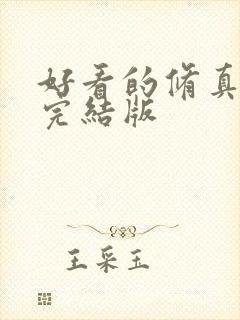 好看的脩真
完結版
王采玉